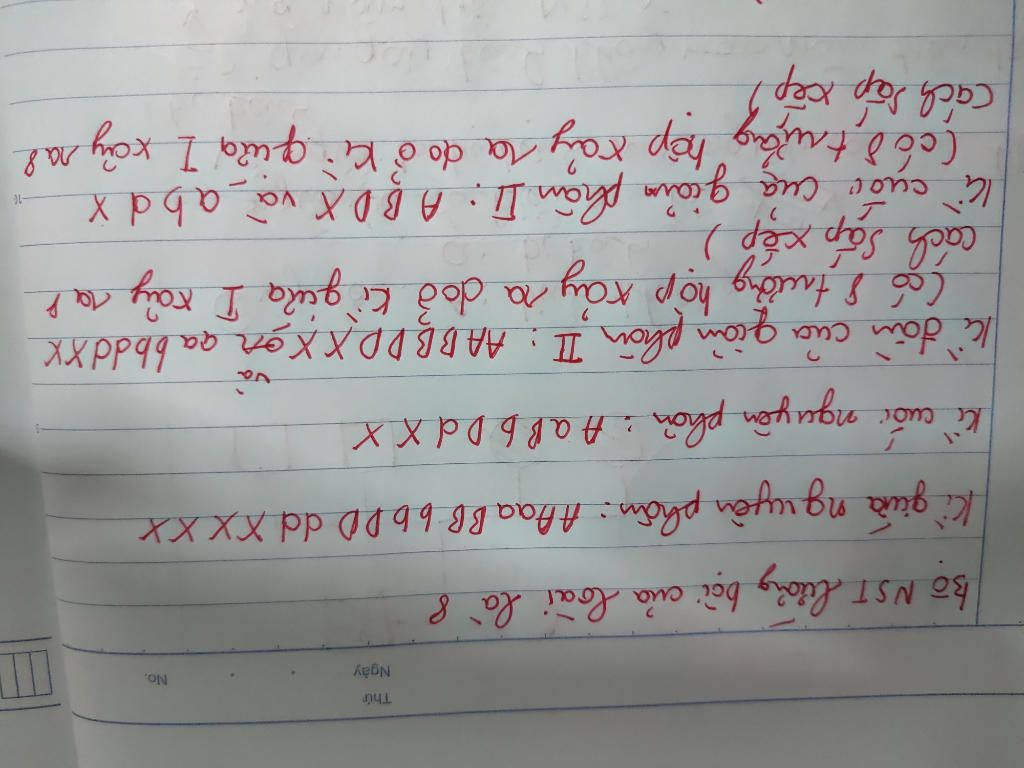 Thứ
Ngày
No.
Bộ NST lưỡng bội của loài là 8
Kì giữa nguyên phân: AAaaBBbbDDddXXXX
Kì cuối nguyên phân: AaBbDdXX
Kì đầu của giảm phân II: AABBDDXX và aabbddXX
(có 8 trường hợp xảy ra do ở kì giữa I xảy ra 8
cách sắp xếp)
Kì cuối của giảm phân II: ABDX và abdX
(có 8 trường hợp xảy ra do ở kì giữa I xảy ra 8
cách sắp xếp)